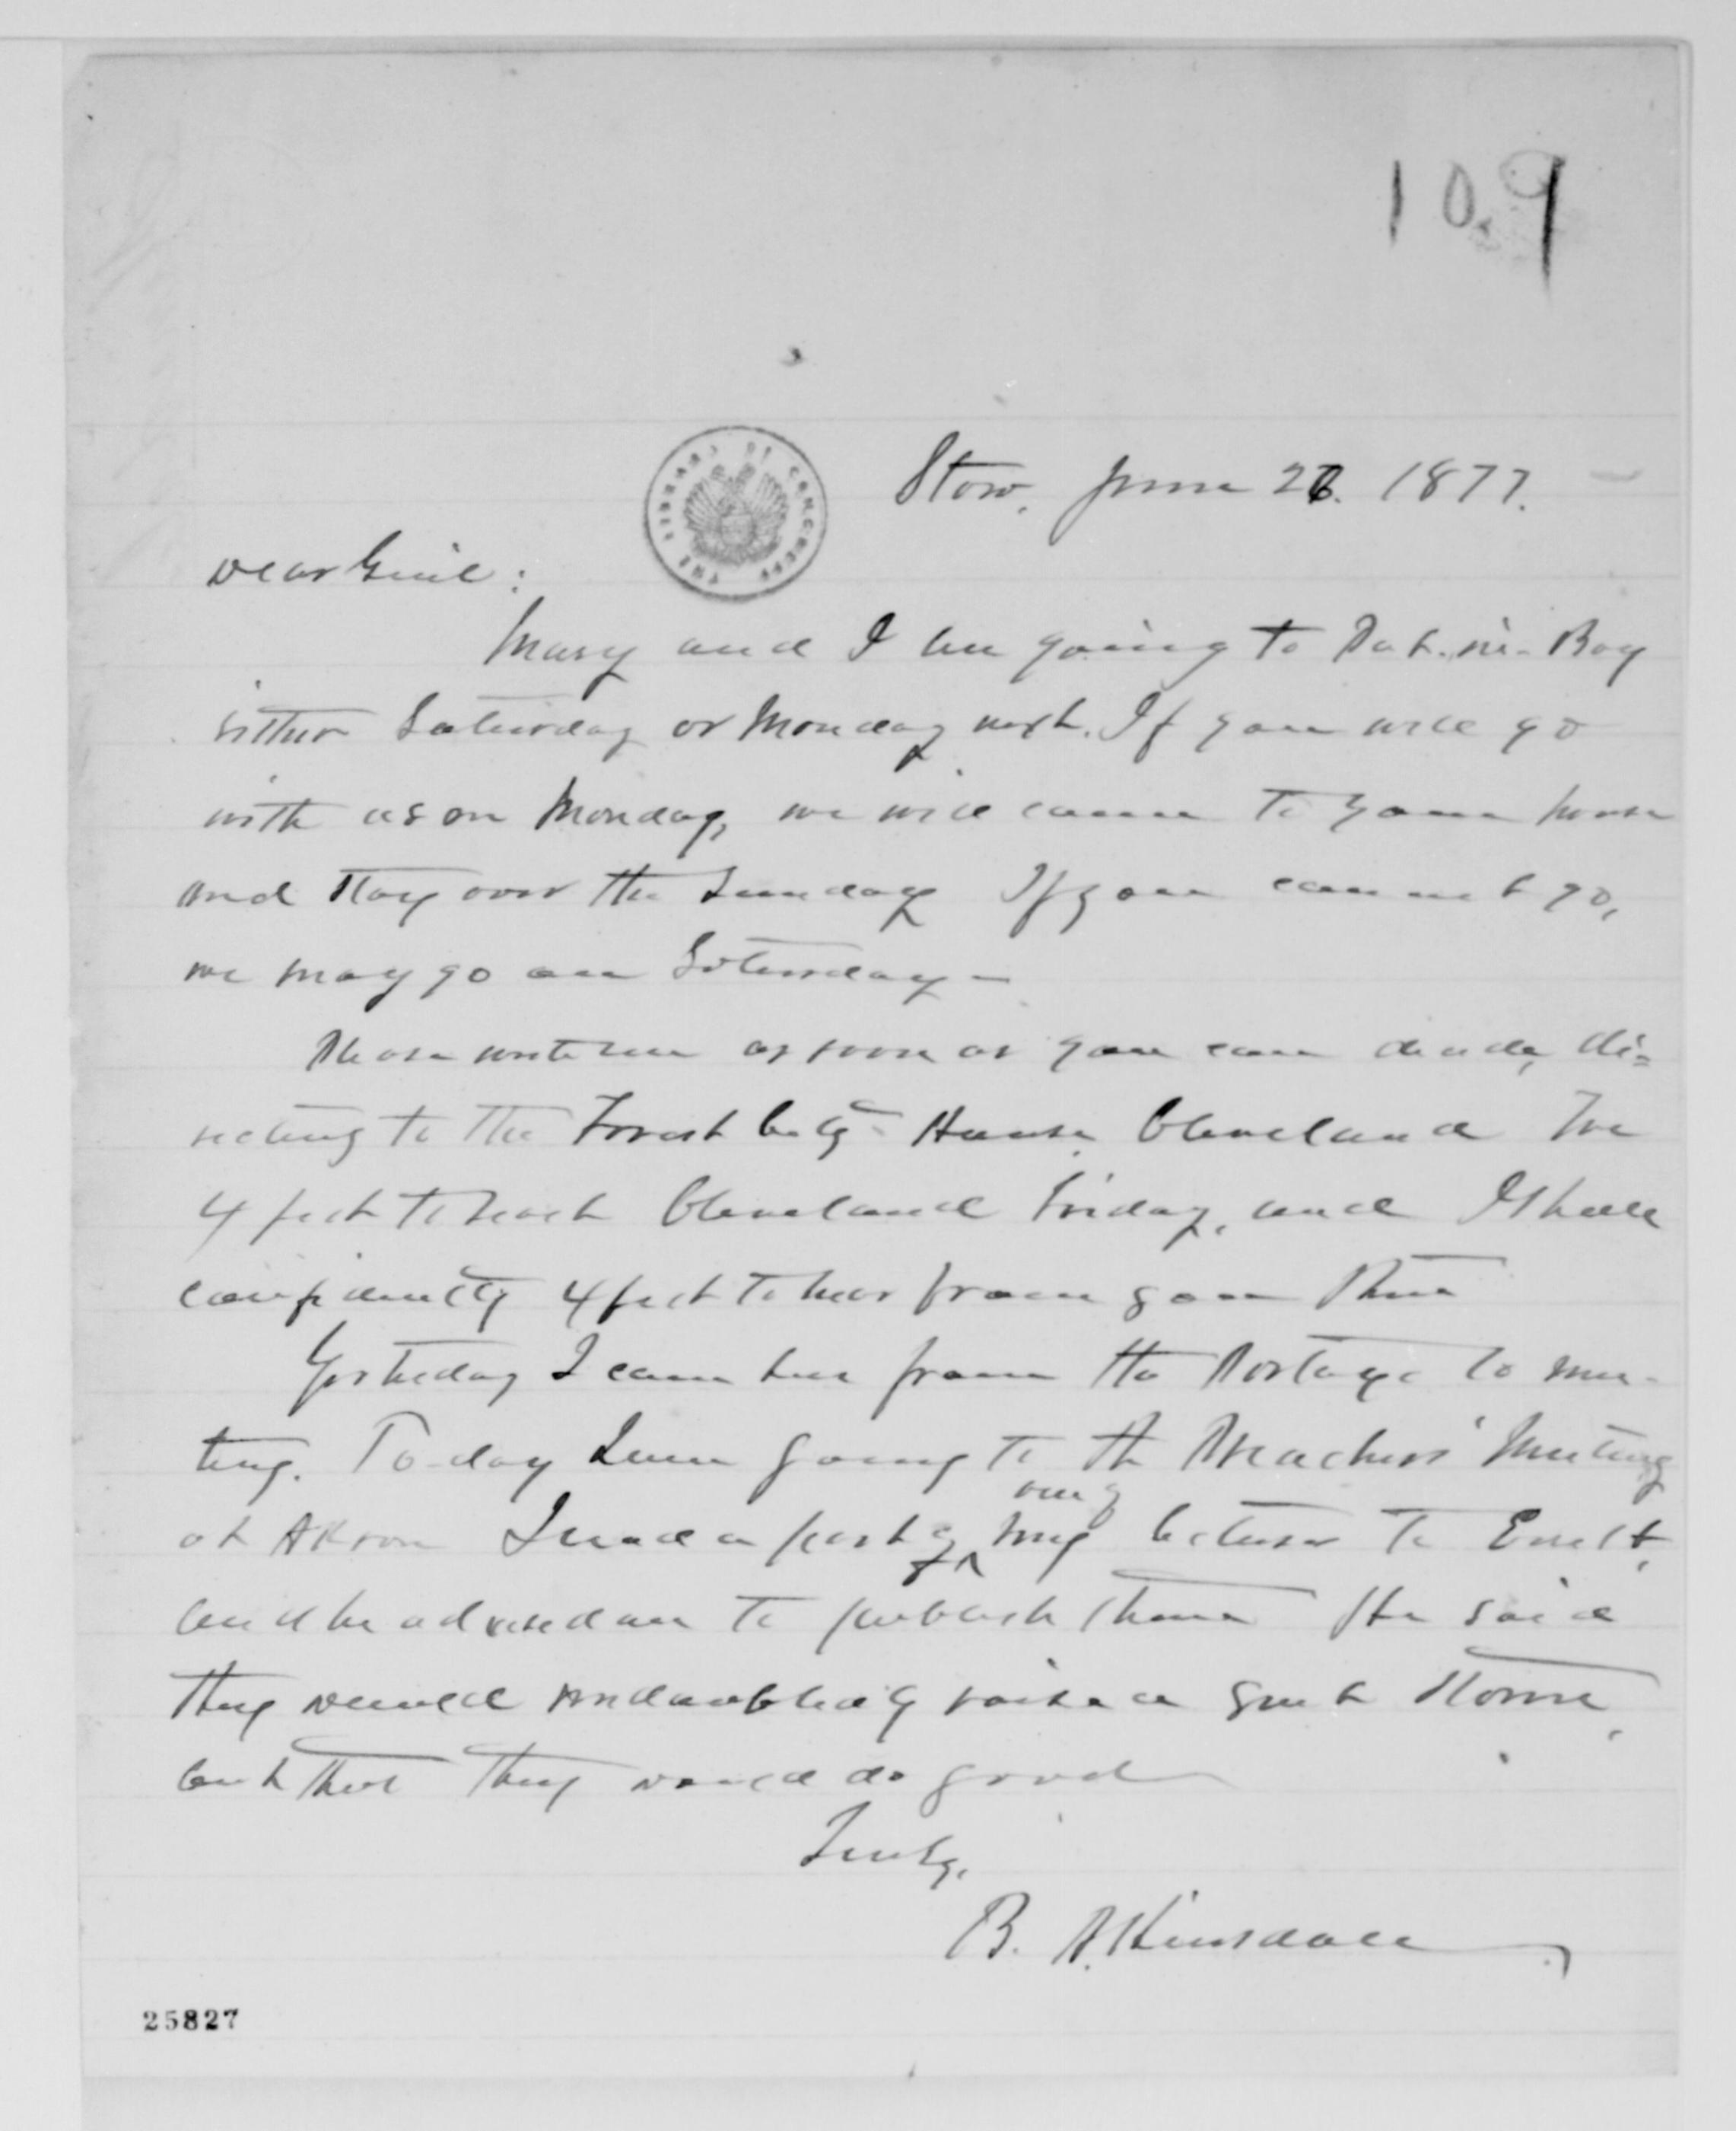 109
Stow, June 26. 1877.
THE LIBRARY OF CONGRESS
Dear Genl:
Mary and I are going to Put-in-Bay
either Saturday or Monday next. If you will go
with us on Monday, we will come to your house
and stay over the Sunday If you cannot go,
we may go on Saturday —
Please write me as soon as you can decide, di=
recting to the Forest City House, Cleveland We
expect to reach Cleveland Friday, and I shall
confidently expect to hear from you there
Yesterday I came here from the Portage Co mee-
ting. To-day I am going to the Preachers' Meeting
at Akron I read a part of my
lectures to Errett,
and he advised me to publish them He said
they would undoubtedly raise a great storm,
but that they would do good
Truly,
B. A. Hinsdale
25827